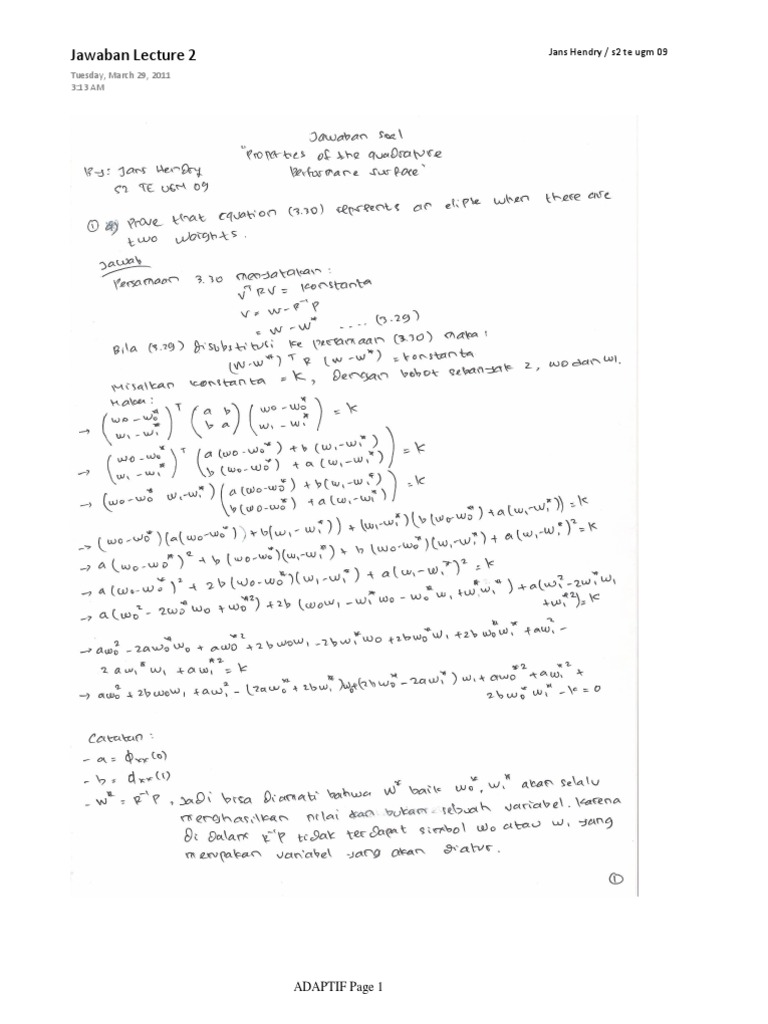 Jawaban Lecture 2
Jans Hendry / s2 te ugm 09
Tuesday, March 29, 2011
3:13 AM
Jawaban soal
"Properties of the quadrature
Performane surface"
By: Jans Hendry
S2 TE UGM 09
① a) Prove that equation (3.30) represents an eliple when there are
two weights.
Jawab
Persamaan 3.30 menyatakan :
VᵀRV = konstanta
V = W - R⁻¹P
= W - W* .... (3.29)
Bila (3.29) disubstitusi ke persamaan (3.30) maka :
(W-W*)ᵀ R (W-W*) = konstanta
Misalkan konstanta = k, dengan bobot sebanyak 2, w0 dan w1.
Maka :
→ (w0-w0* w1-w1*)ᵀ (a b b a) (w0-w0* w1-w1*) = k
→ (w0-w0* w1-w1*)ᵀ (a(w0-w0*) + b(w1-w1*) b(w0-w0*) + a(w1-w1*)) = k
→ (w0-w0* w1-w1*) (a(w0-w0*) + b(w1-w1*) b(w0-w0*) + a(w1-w1*)) = k
→ (w0-w0*)(a(w0-w0*) + b(w1-w1*)) + (w1-w1*)(b(w0-w0*) + a(w1-w1*)) = k
→ a(w0-w0*)² + b(w0-w0*)(w1-w1*) + b(w0-w0*)(w1-w1*) + a(w1-w1*)² = k
→ a(w0-w0*)² + 2b(w0-w0*)(w1-w1*) + a(w1-w1*)² = k
→ a(w0² - 2w0*w0 + w0*²) + 2b(w0w1 - w1*w0 - w0*w1 + w0*w1*) + a(w1² - 2w1*w1
+w1*²) = k
→ aw0² - 2aw0*w0 + aw0*² + 2bw0w1 - 2bw1*w0 + 2bw0*w1 + 2bw0*w1* + aw1² -
2aw1*w1 + aw1*² = k
→ aw0² + 2bw0w1 + aw1² - (2aw0* + 2bw1*)w0 + (2bw0* - 2aw1*)w1 + aw0*² + aw1*² +
2bw0*w1* - k = 0
Catatan :
- a = ϕxx(0)
- b = ϕxx(1)
- W* = R⁻¹P, jadi bisa diamati bahwa W* baik w0*, w1* akan selalu
menghasilkan nilai dan bukan sebuah variabel. Karena
di dalam R⁻¹P tidak terdapat simbol w0 atau w1 yang
merupakan variabel yang akan diatur.
①
ADAPTIF Page 1